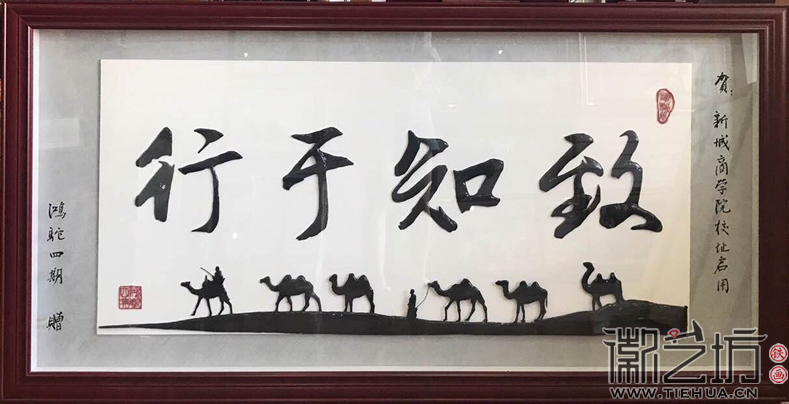 贺：新城商学院校址启用
致知于行
鸿驼四期 赠
徽艺坊
铁画
WWW.TIEHUA.CN